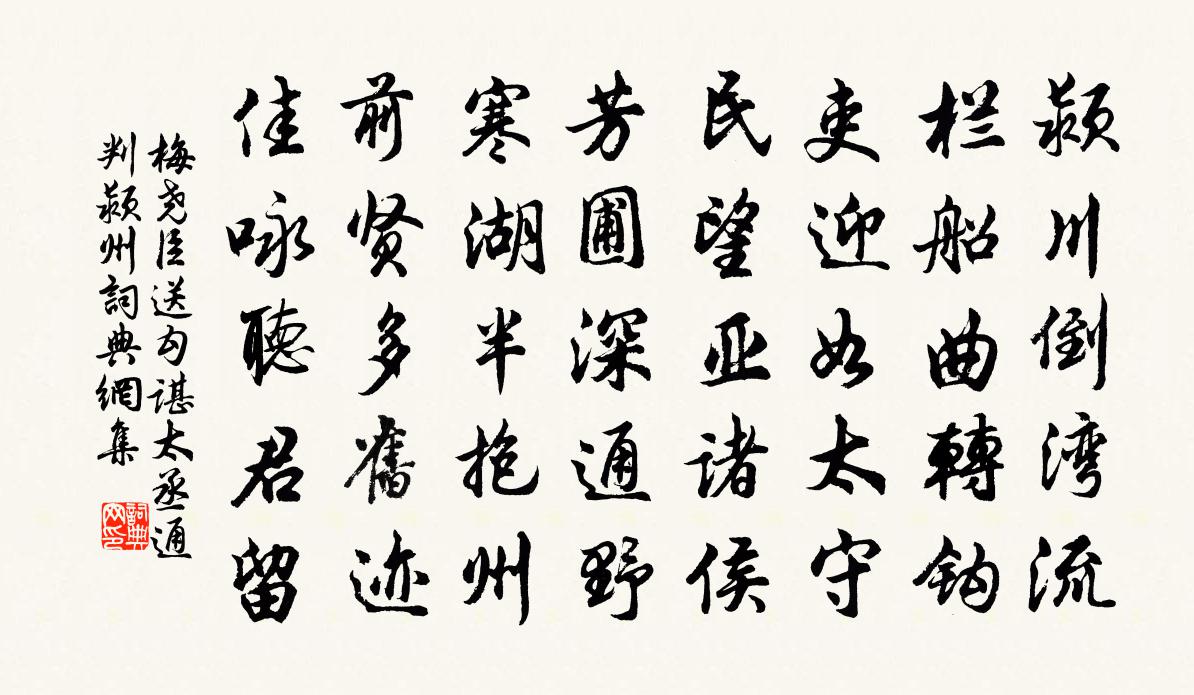 颍川倒湾流
栏船曲轉钩
吏迎如太守
民望亚诸侯
芳圃深通野
寒湖半抱州
前贤多舊迹
佳咏聽君留
梅尧臣送勾諶太丞通
判颍州詞典網集
詞典
网印